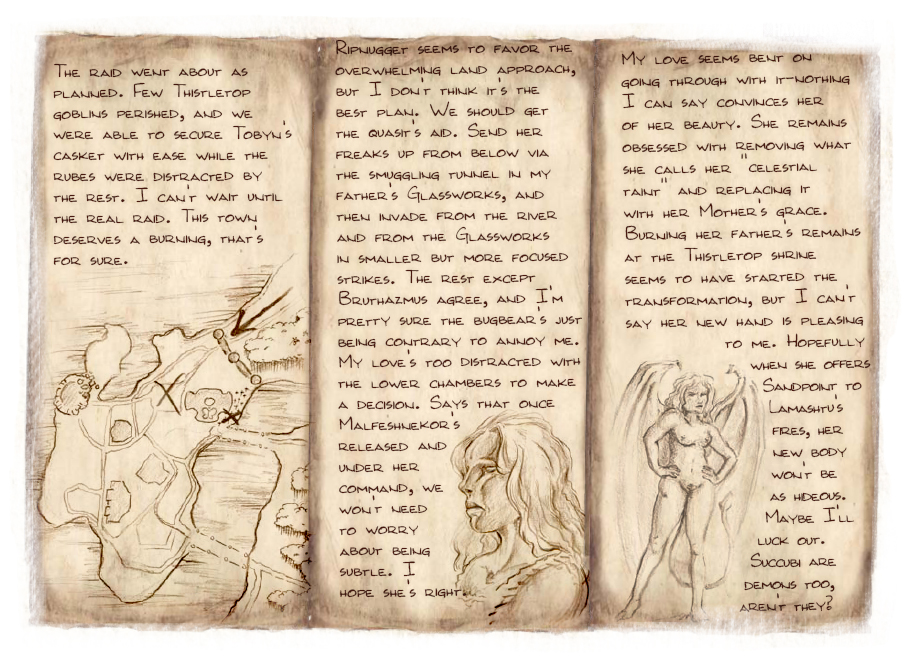 The raid went about as
planned. Few Thistletop
goblins perished, and we
were able to secure Tobyn's
casket with ease while the
rubes were distracted by
the rest. I can't wait until
the real raid. This town
deserves a burning, that's
for sure.
Ripnugget seems to favor the
overwhelming land approach,
but I don't think it's the
best plan. We should get
the quasit's aid. Send her
freaks up from below via
the smuggling tunnel in my
father's Glassworks, and
then invade from the river
and from the Glassworks
in smaller but more focused
strikes. The rest except
Bruthazmus agree, and I'm
pretty sure the bugbear's just
being contrary to annoy me.
My love's too distracted with
the lower chambers to make
a decision. Says that once
Malfeshnekor's
released and
under her
command, we
won't need
to worry
about being
subtle. I
hope she's right...
My love seems bent on
going through with it—nothing
I can say convinces her
of her beauty. She remains
obsessed with removing what
she calls her "celestial
taint" and replacing it
with her Mother's grace.
Burning her father's remains
at the Thistletop shrine
seems to have started the
transformation, but I can't
say her new hand is pleasing
to me. Hopefully
when she offers
Sandpoint to
Lamashtu's
fires, her
new body
won't be
as hideous.
Maybe I'll
luck out.
Succubi are
demons too,
aren't they?